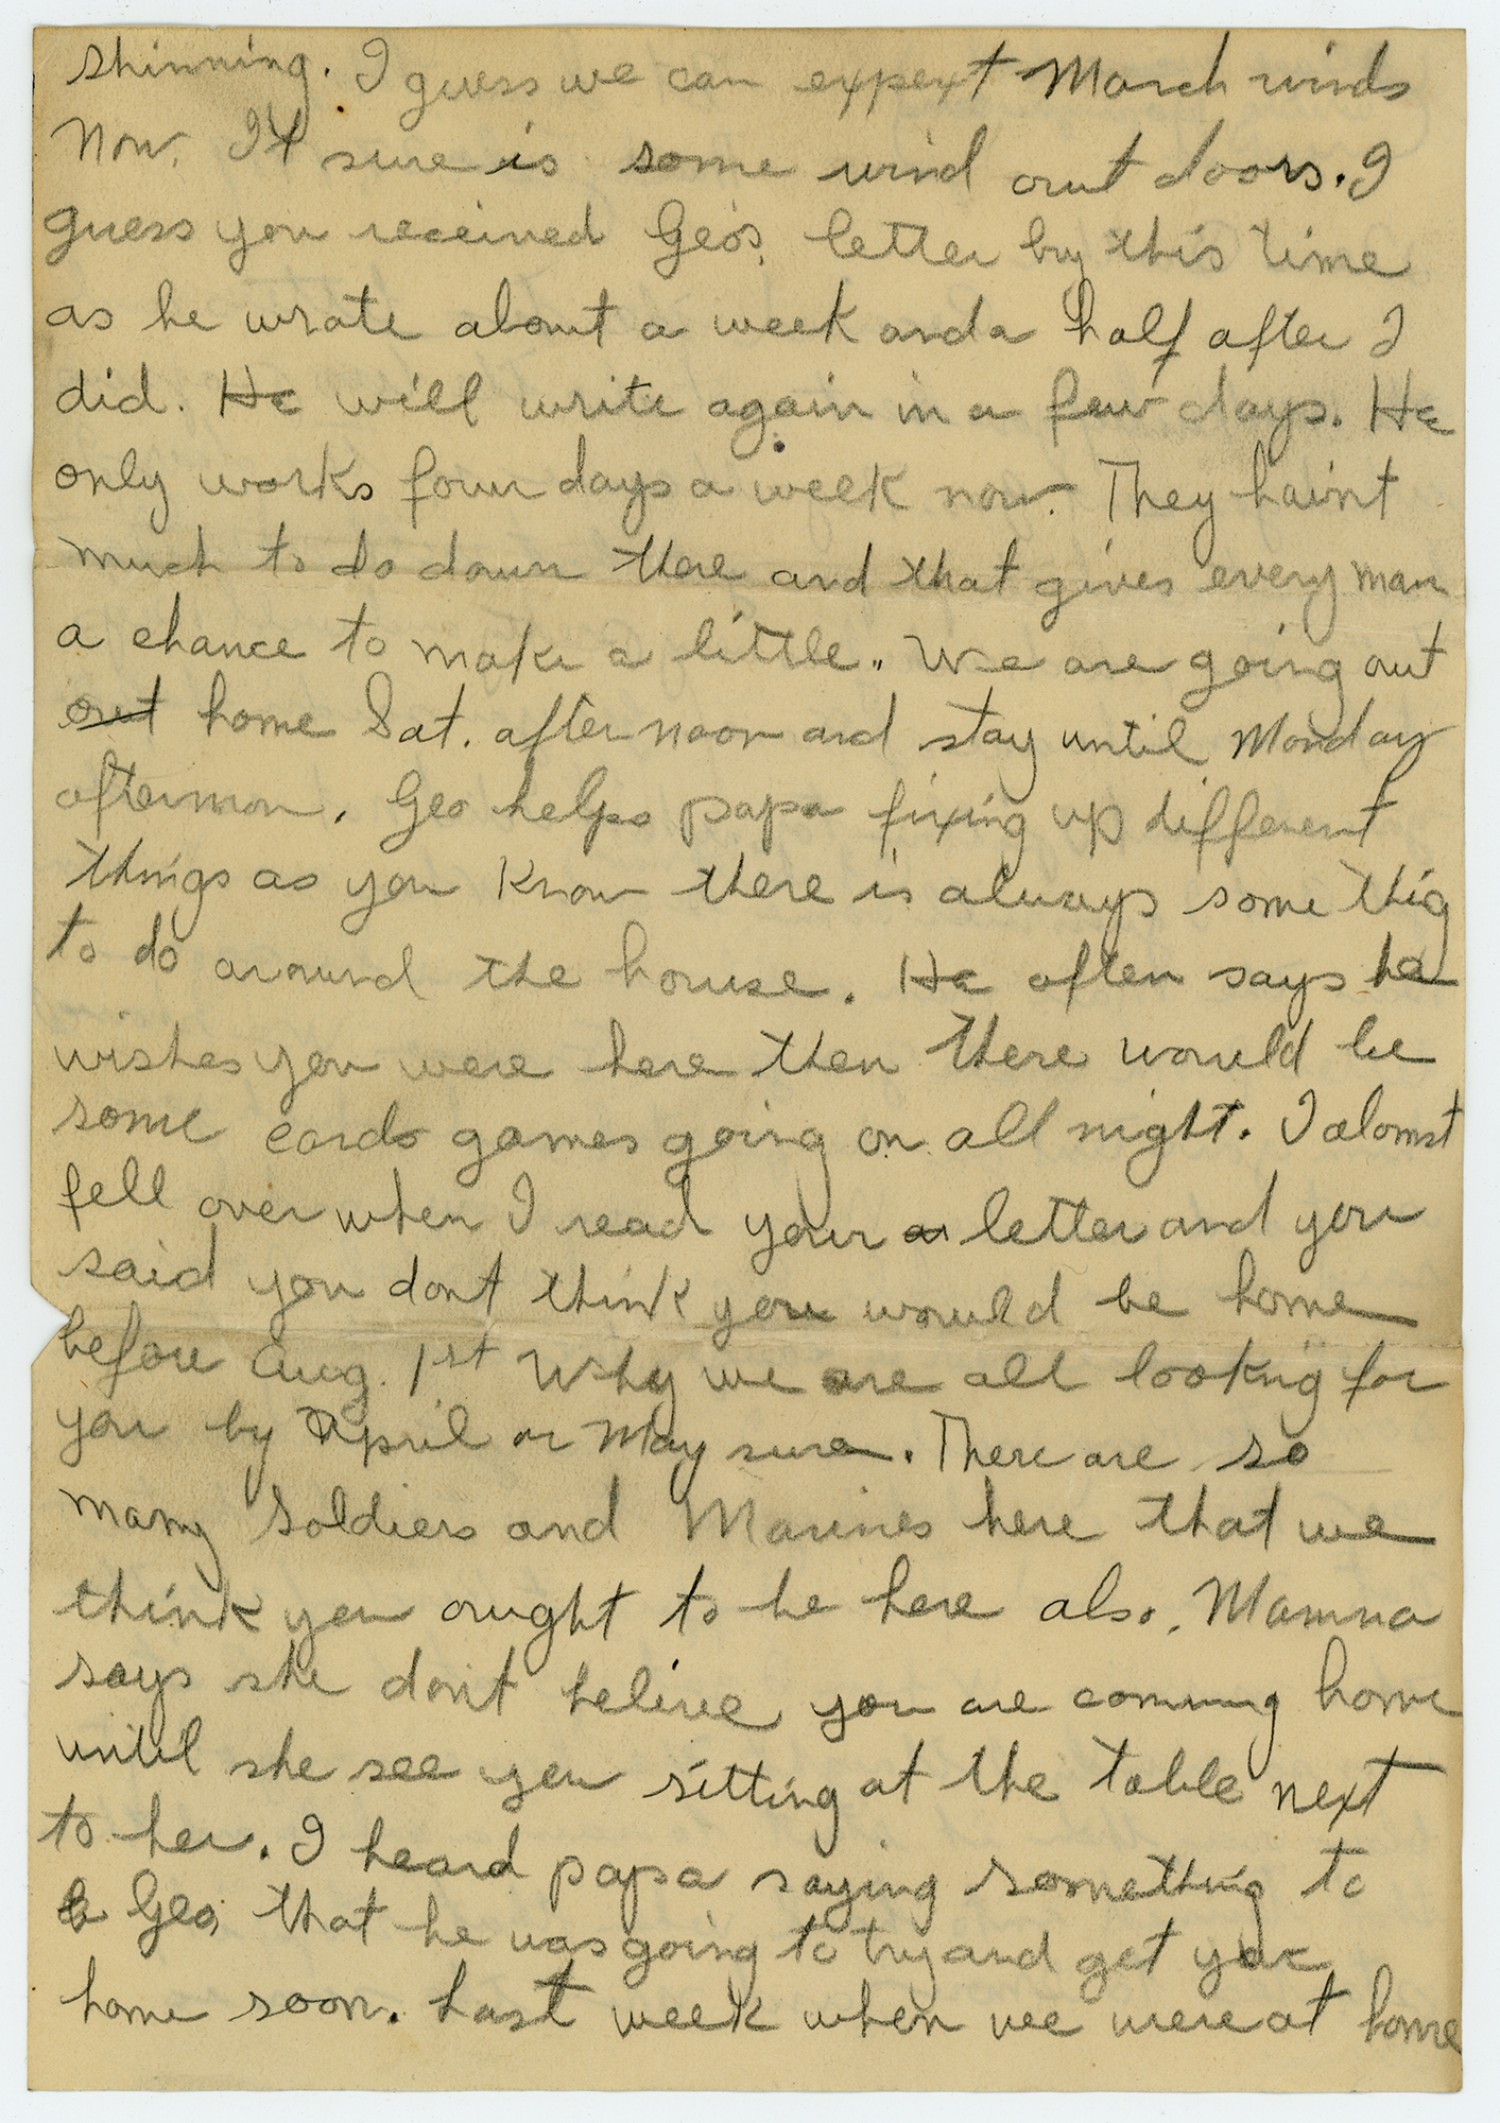 shinning. I guess we can expext March winds
Now. It sure is some wind out doors. I
guess you received Geo's. letter by this time
as he wrote about a week and a half after I
did. He will write again in a few days. He
only works four days a week now. They haint
much to do down there and that gives every man
a chance to make a little.. We are going out
out home Sat. afternoon and stay until Monday
afternoon. Geo helps papa fixing up different
things as you know there is always some thig
to do around the house. He often says he
wishes you were here then there would be
some cards games going on all night. I alomst
fell over when I read your letter and you
said you dont think you would be home
before Aug. 1st Why we are all looking for
you by April or May sure. There are so
many soldiers and Marines here that we
think you ought to be here also. Mamma
says she don't belive you are comming home
until she see you sitting at the table next
to her. I heard papa saying something to
Geo, that he was going to try and get you
home soon. Last week when we were at home